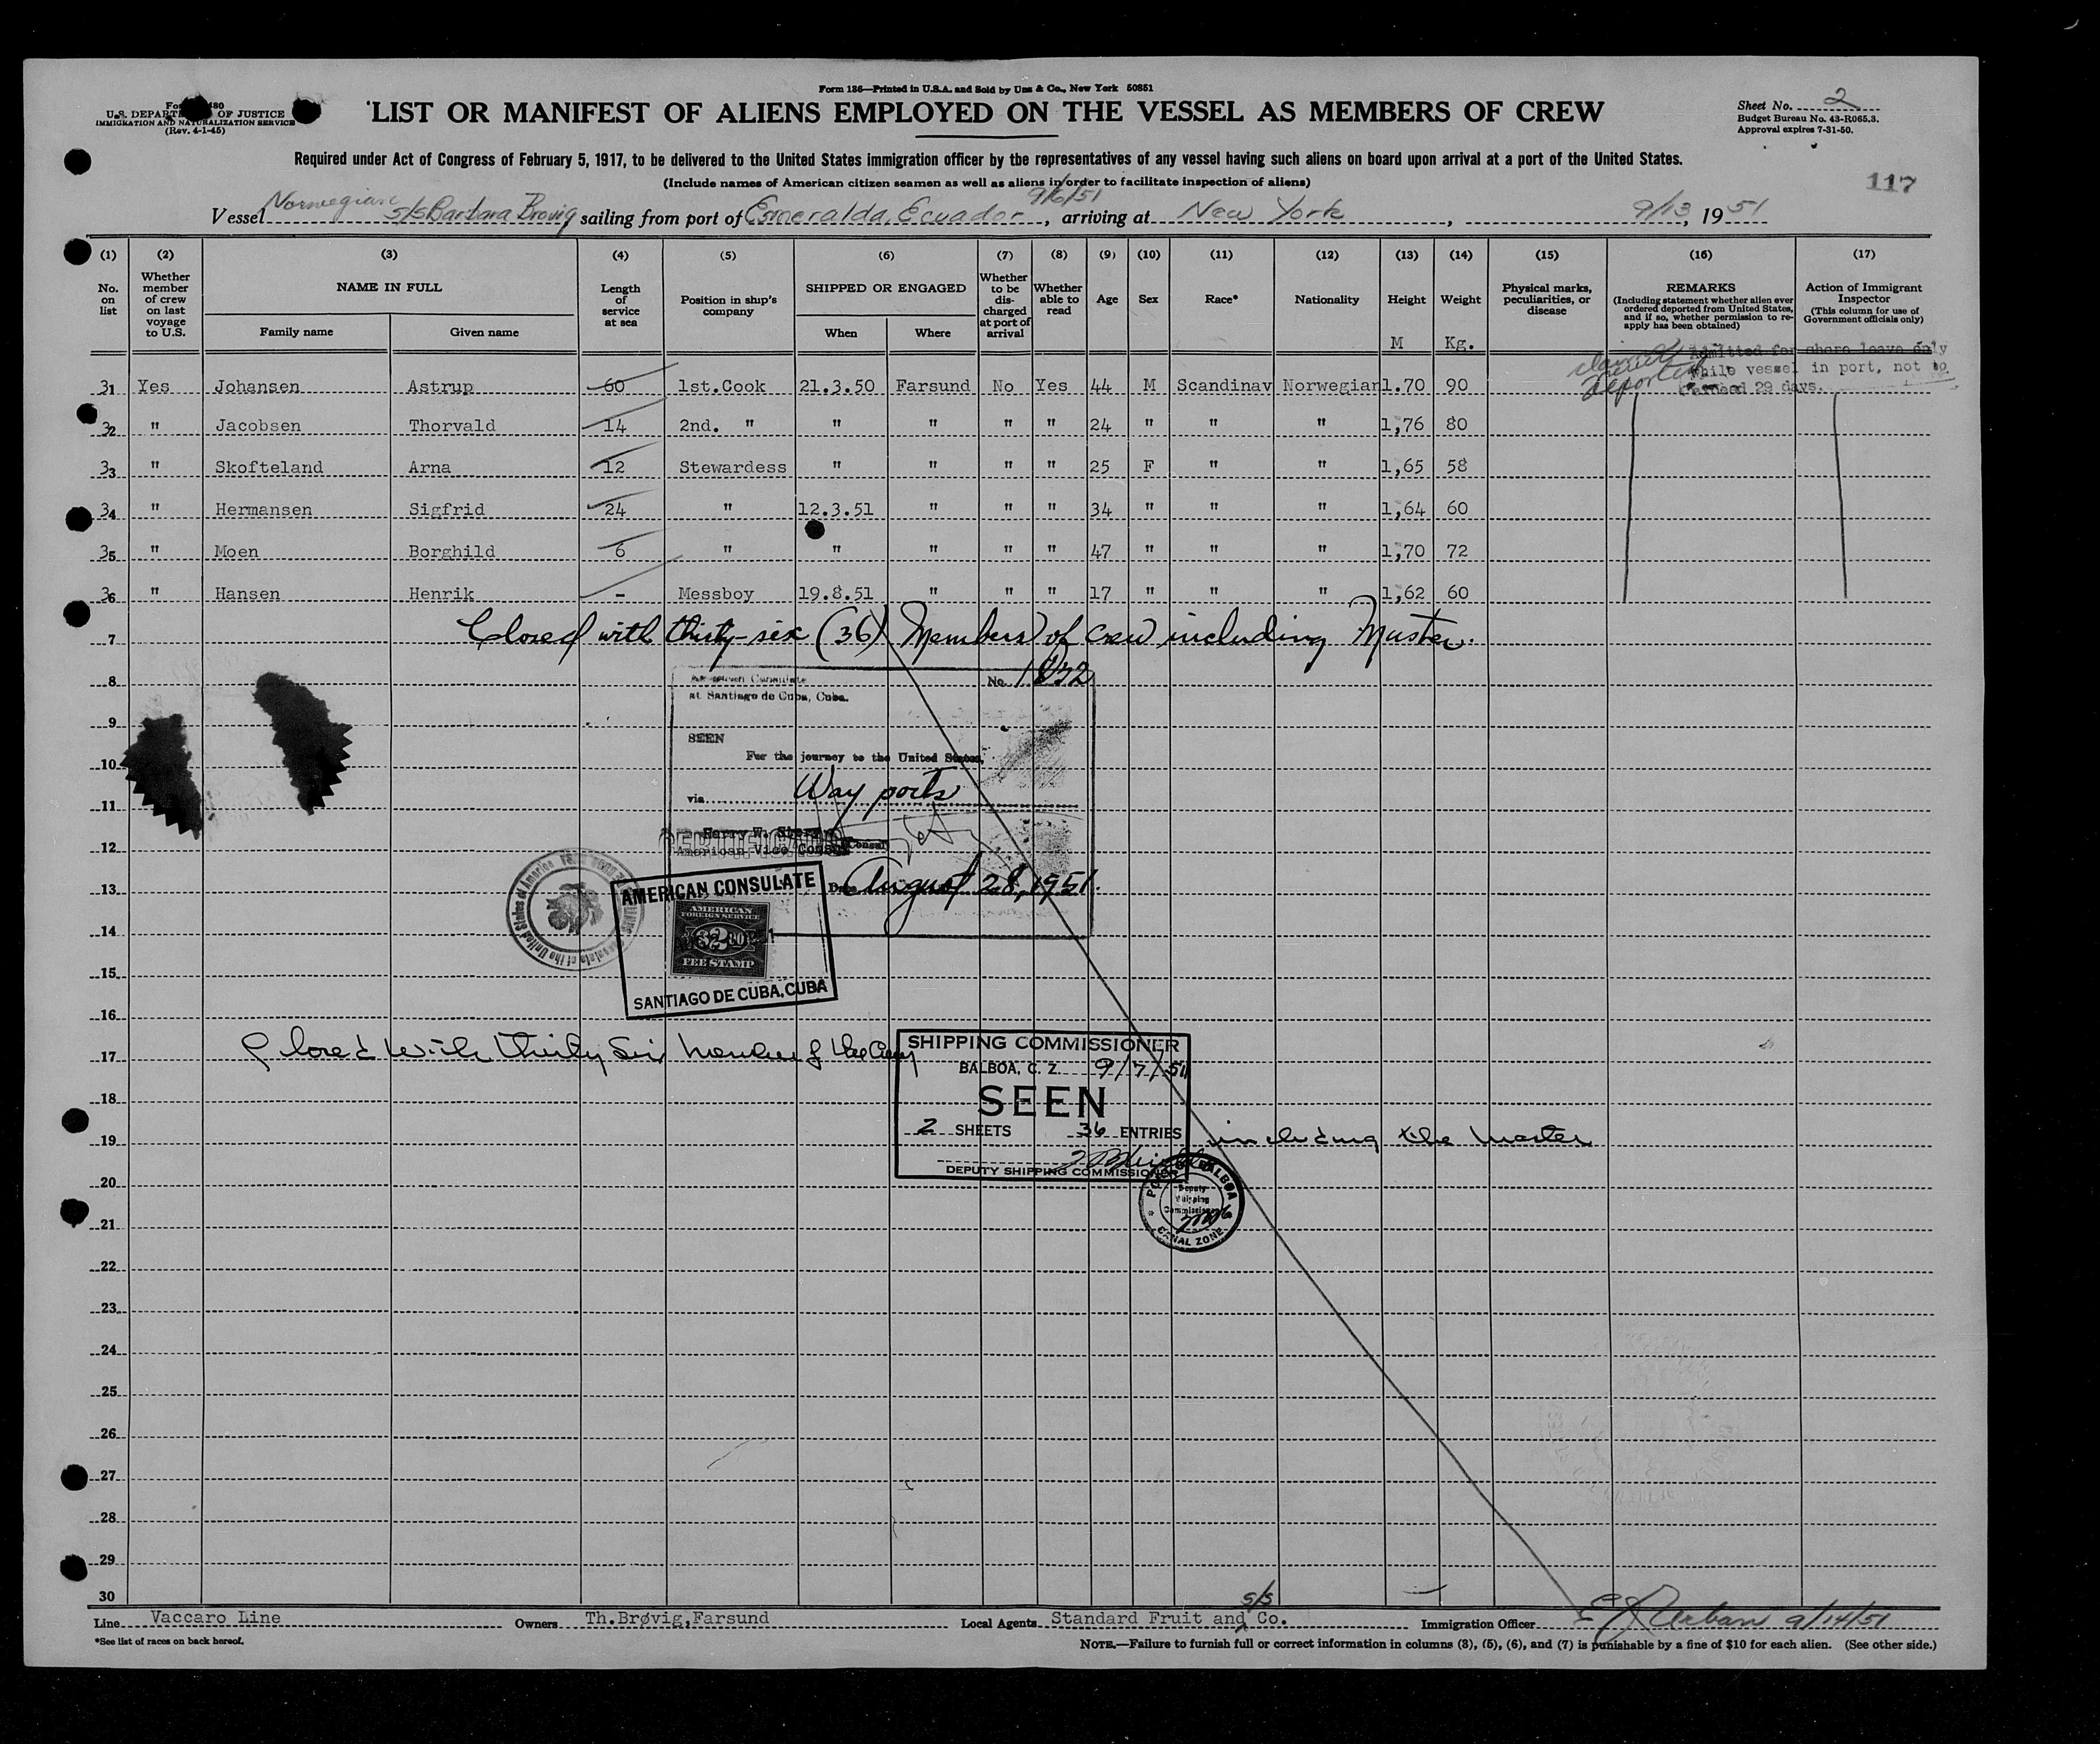 Form 136—Printed in U.S.A. and Sold by Unz & Co., New York 50851
480
U.S. DEPARTMENT OF JUSTICE
IMMIGRATION AND NATURALIZATION SERVICE
(Rev. 4-1-45)
LIST OR MANIFEST OF ALIENS EMPLOYED ON THE VESSEL AS MEMBERS OF CREW
Sheet No. 2
Budget Bureau No. 43-R065.3.
Approval expires 7-31-50.
Required under Act of Congress of February 5, 1917, to be delivered to the United States immigration officer by the representatives of any vessel having such aliens on board upon arrival at a port of the United States.
(Include names of American citizen seamen as well as aliens in order to facilitate inspection of aliens)
117
9/6/51
Vessel Norwegian s/s Barbara Brovig sailing from port of Esmeralda, Ecuador, arriving at New York, 9/13, 1951
(1) (2) (3) (4) (5) (6) (7) (8) (9) (10) (11) (12) (13) (14) (15) (16) (17)
No. on list
Whether member of crew on last voyage to U.S.
NAME IN FULL
Family name
Given name
Length of service at sea
Position in ship's company
SHIPPED OR ENGAGED
When
Where
Whether to be discharged at port of arrival
Whether able to read
Age
Sex
Race*
Nationality
Height
M
Weight
Kg.
Physical marks, peculiarities, or disease
REMARKS
(Including statement whether alien ever ordered deported from United States, and if so, whether permission to reapply has been obtained)
Action of Immigrant Inspector
(This column for use of Government officials only)
Admitted for shore leave only
while vessel in port, not to
exceed 29 days.
31 Yes Johansen Astrup 60 1st.Cook 21.3.50 Farsund No Yes 44 M Scandinav Norwegian 1.70 90
32 " Jacobsen Thorvald 14 2nd. " " " " " 24 " " " 1,76 80
33 " Skofteland Arna 12 Stewardess " " " " 25 F " " 1,65 58
34 " Hermansen Sigfrid 24 " 12.3.51 " " " 34 " " " 1,64 60
35 " Moen Borghild 6 " " " " " 47 " " " 1,70 72
36 " Hansen Henrik - Messboy 19.8.51 " " " 17 " " " 1,62 60
7 Closed with thirty-six (36) Members of crew including Master.
8
American Consulate
No. 1832
at Santiago de Cuba, Cuba.
9
SEEN
For the journey to the United States,
10
via Way ports
11
CERTIFICATE
Harry W. Story
American Vice Consul
12
Date August 28, 1951.
13
AMERICAN CONSULATE
AMERICAN
FOREIGN SERVICE
FEE STAMP
SANTIAGO DE CUBA, CUBA
14
15
16
17 Closed with thirty six members of the Crew
SHIPPING COMMISSIONER
BALBOA, C. Z. 9/7/51
SEEN
18
2 SHEETS 36 ENTRIES
19 including the master
DEPUTY SHIPPING COMMISSIONER
PORT OF BALBOA
Deputy
Shipping
Commissioner
CANAL ZONE
20
21
22
23
24
25
26
27
28
29
30
s/s
Line Vaccaro Line Owners Th.Brøvig,Farsund Local Agents Standard Fruit and Co. Immigration Officer E J Urban 9/14/51
*See list of races on back hereof.
NOTE.—Failure to furnish full or correct information in columns (3), (5), (6), and (7) is punishable by a fine of $10 for each alien. (See other side.)